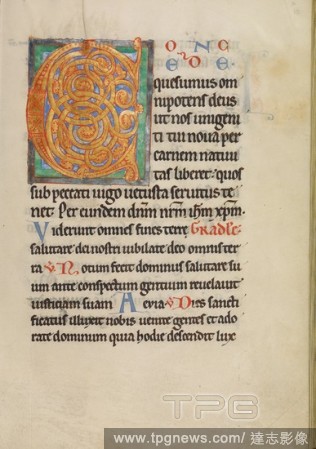 CONC
EDE
quesumus om
nipotens deus
ut nos unigeni
ti tui nova per
carnem nativi
tas liberet: quos
sub peccati iugo vetusta servitus te
net. Per eundem dnm nrm ihm xpm.
Viderunt omnes fines terre Gradle
salutare dei nostri iubilate deo omnis ter
ra Notum fecit dominus salutare su
um ante conspectum gentium revelavit
iusticiam suam Aevia Dies sancti
ficatus illuxit nobis venite gentes et ado
rate dominum quia hodie descendit lux
TPG
www.tpgnews.com/達志影像